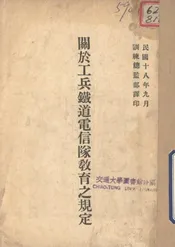 民國十八年九月
訓練總監部譯印
關於工兵鐵道電信隊教育之規定
交通大學圖書館計編
CHIAO-TUNG UNIV. LIBRARY